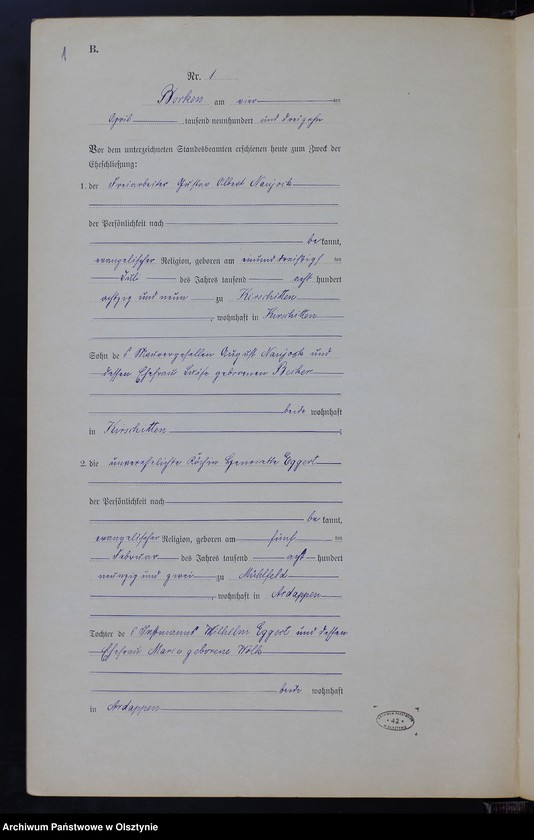 1
B.
Nr. 1
Borken am vier ten
April tausend neunhundert und dreizehn
Vor dem unterzeichneten Standesbeamten erschienen heute zum Zweck der
Eheschließung:
1. der Freiarbeiter Gustav Albert Naujock
der Persönlichkeit nach
be kannt,
evangelischer Religion, geboren am einunddreißigs ten
Juli des Jahres tausend acht hundert
achtzig und neun zu Kirschitten
, wohnhaft in Kirschitten
Sohn des Maurergesellen August Naujock und
dessen Ehefrau Luise geborenen Becker
beide wohnhaft
in Kirschitten ;
2. die unverehelichte Köchin Henriette Eggert
der Persönlichkeit nach
be kannt,
evangelischer Religion, geboren am fünf ten
Februar des Jahres tausend acht hundert
neunzig und zwei zu Mühlfeld
, wohnhaft in Ardappen
Tochter des Instmanns Wilhelm Eggert und dessen
Ehefrau Maria geborene Wölk
beide wohnhaft
in Ardappen
42
Archiwum Państwowe w Olsztynie